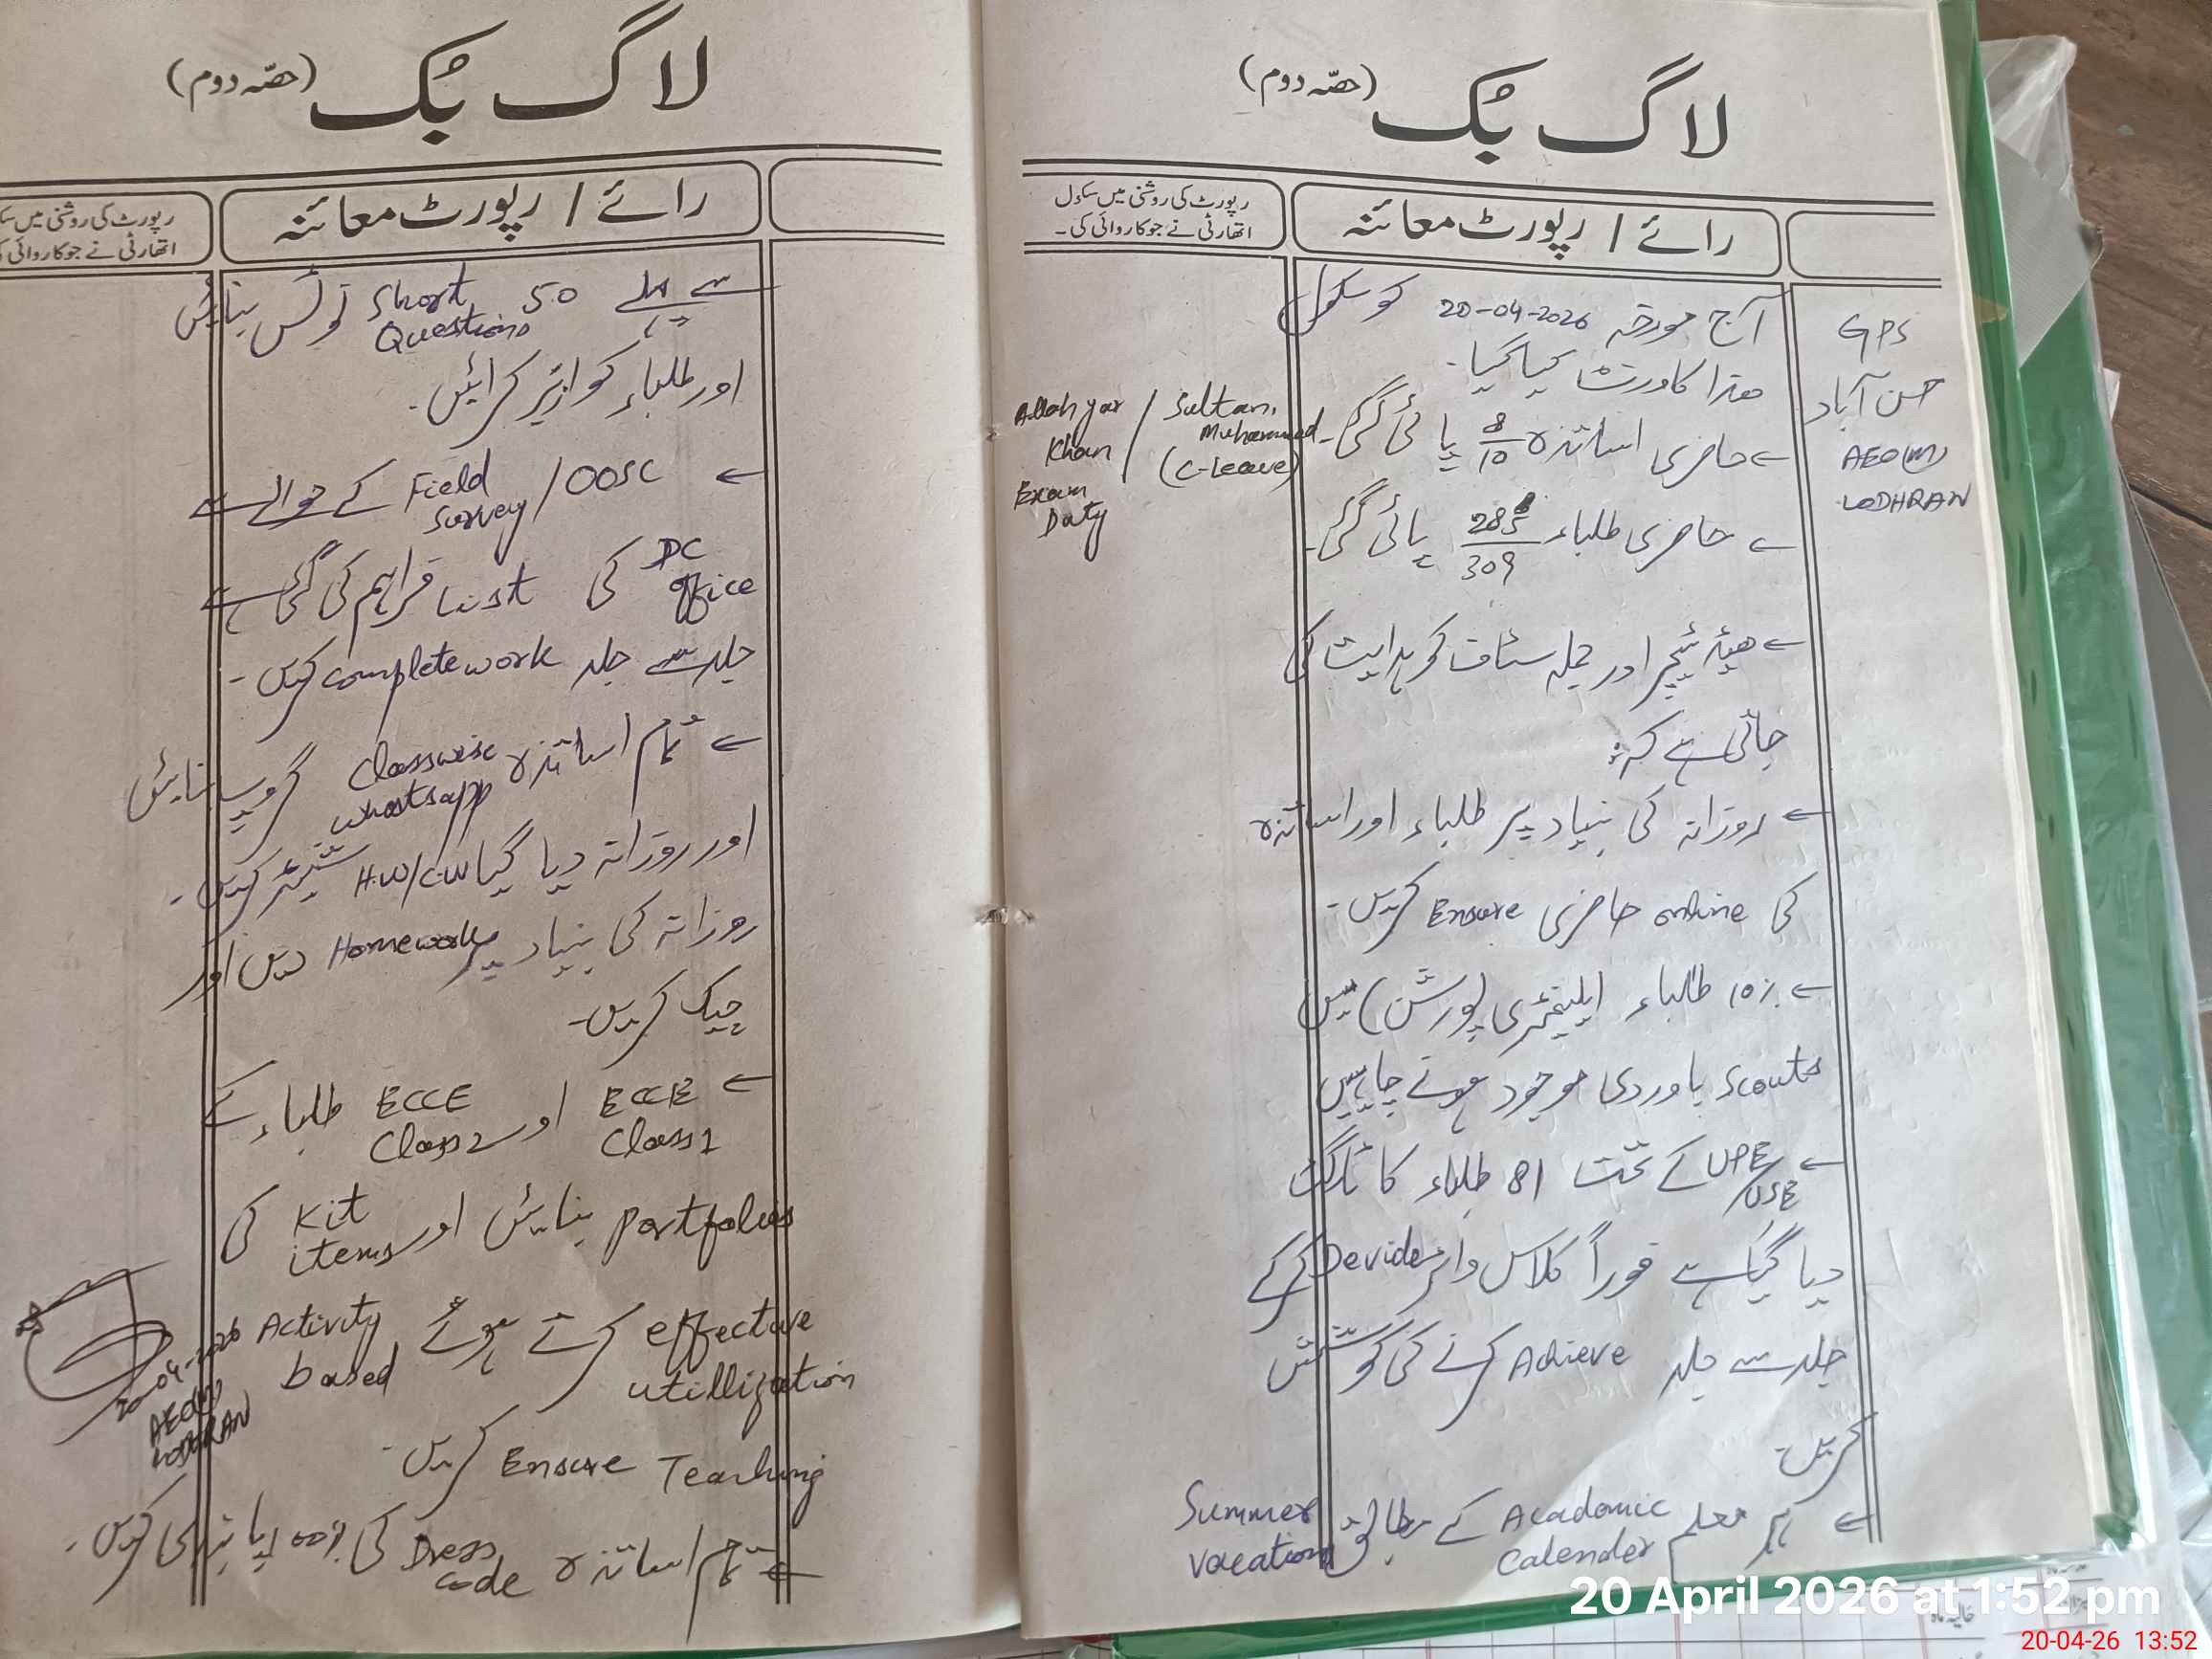 لاگ بُک (حصّہ دوم)
رائے / رپورٹ معائنہ
رپورٹ کی روشنی میں سکول
اتھارٹی نے جو کاروائی کی۔
GPS
حسن آباد
AEO(M)
LODHRAN
آج مورخہ 20-04-2026 کو سکول
ھذا کا وزٹ کیا گیا۔
← حاضری اساتذہ 8/10 پائی گئی۔
Allah yar Khan / Sultan Muhammad
Exam Duty (C-Leave)
← حاضری طلباء 285/309 پائی گئی۔
← ھیڈ ٹیچر اور جملہ سٹاف کو ہدایت کی
جاتی ہے کہ:
← روزانہ کی بنیاد پر طلباء اور اساتذہ
کی online حاضری Ensure کریں۔
← 10% طلباء (ایلیمنٹری پورشن) میں
Scouts باوردی موجود ہونے چاہیں
← UPE/USE کے تحت 81 طلباء کا ٹارگٹ
دیا گیا ہے فوراً کلاس وائز Devide کر کے
جلد سے جلد Achieve کرنے کی کوشش
کریں۔
← ہر معلم Academic Calender کے مطابق Summer vacation
لاگ بُک (حصّہ دوم)
رائے / رپورٹ معائنہ
رپورٹ کی روشنی میں
اتھارٹی نے جو کاروائی
سے پہلے پہلے 50 Short Questions نوٹس بنائیں
اور طلباء کو ازبر کرائیں۔
← Field Survey/OOSC کے حوالے سے
DC office کی List فراہم کی گئی ہے
جلد سے جلد complete work کریں۔
← تمام اساتذہ Classwise whatsapp گروپ بنائیں
اور روزانہ دیا گیا H.W/C.W شیئر کریں۔
روزانہ کی بنیاد پر Homework دیں اور
چیک کریں۔
← ECCE Class1 اور ECCE Class2 طلباء کے
Portfolios بنائیں اور Kit items کی
effective utillization کرتے ہوئے Activity based
Teaching Ensure کریں۔
← تمام اساتذہ Dress code کی 100% پابندی کریں۔
20-04-2026
AEO(M)
LODHRAN
20 April 2026 at 1:52 pm
20-04-26 13:52